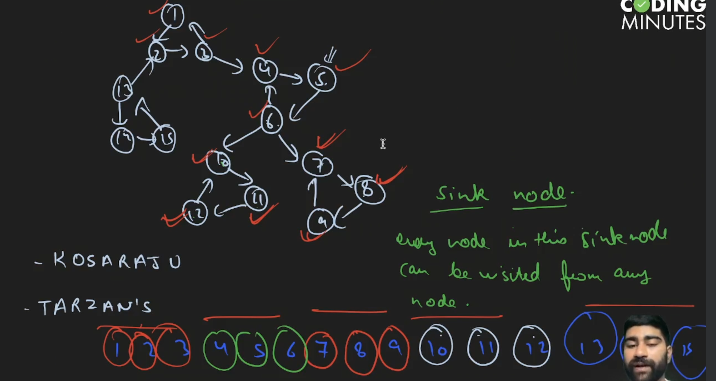 CODING
MINUTES
1
2
3
4
5
13
6
14
15
10
7
11
8
12
9
sink node.
every node in this sinknode
can be visited from any
node.
- KOSARAJU
- TARZAN'S
1 2 3 4 5 6 7 8 9 10 11 12 13 15